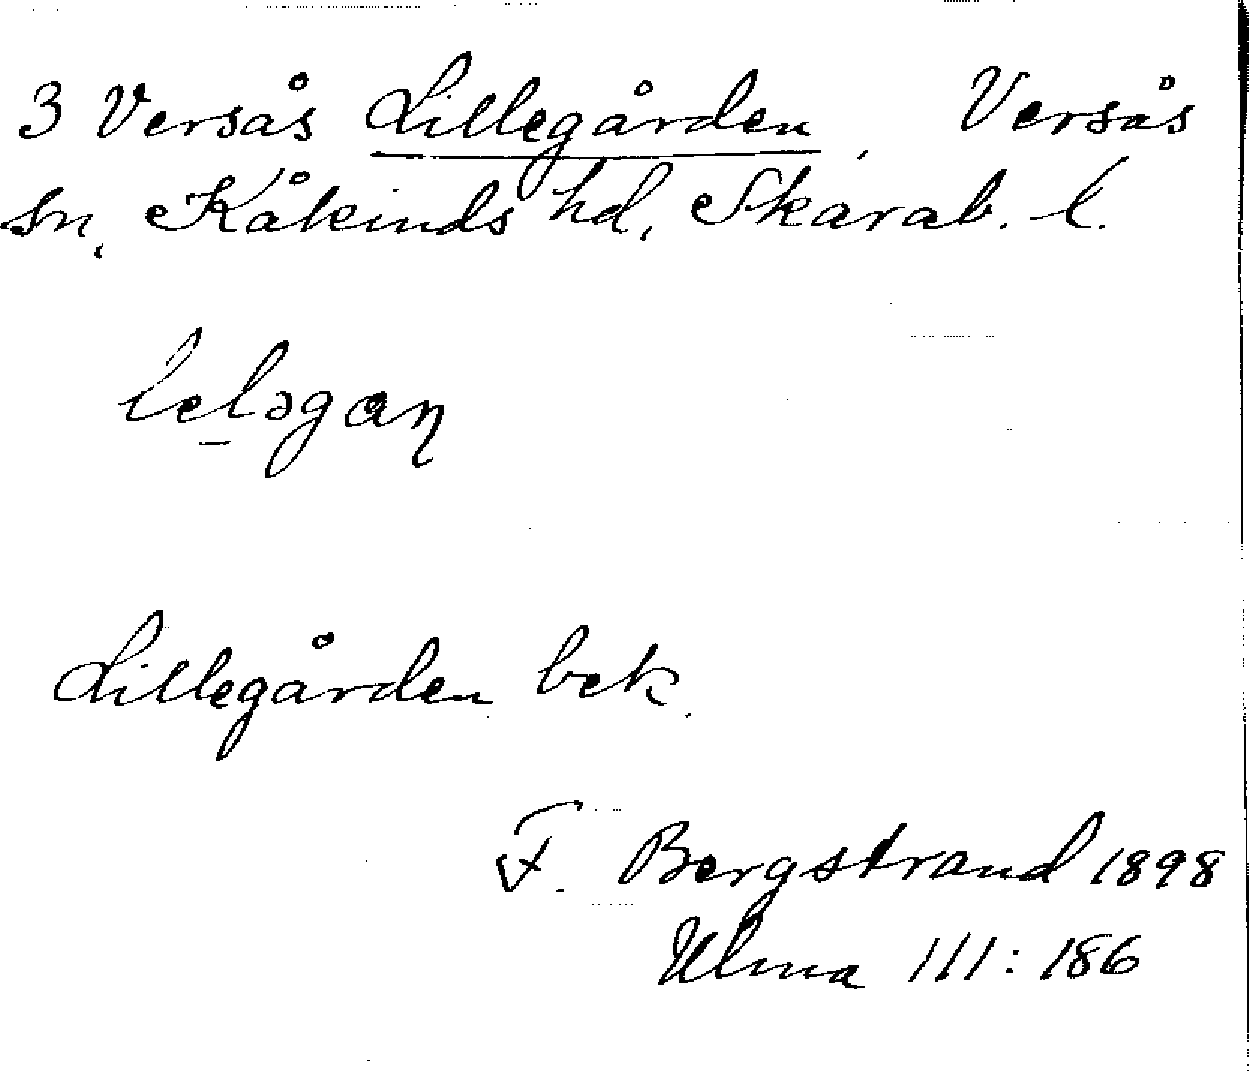 3 Versås Lillegården, Versås
sn, Kåkinds hd, Skarab. l.
lel̠əgaɳ
Lillegården bek.
F. Bergstrand 1898
Ulma 111:186